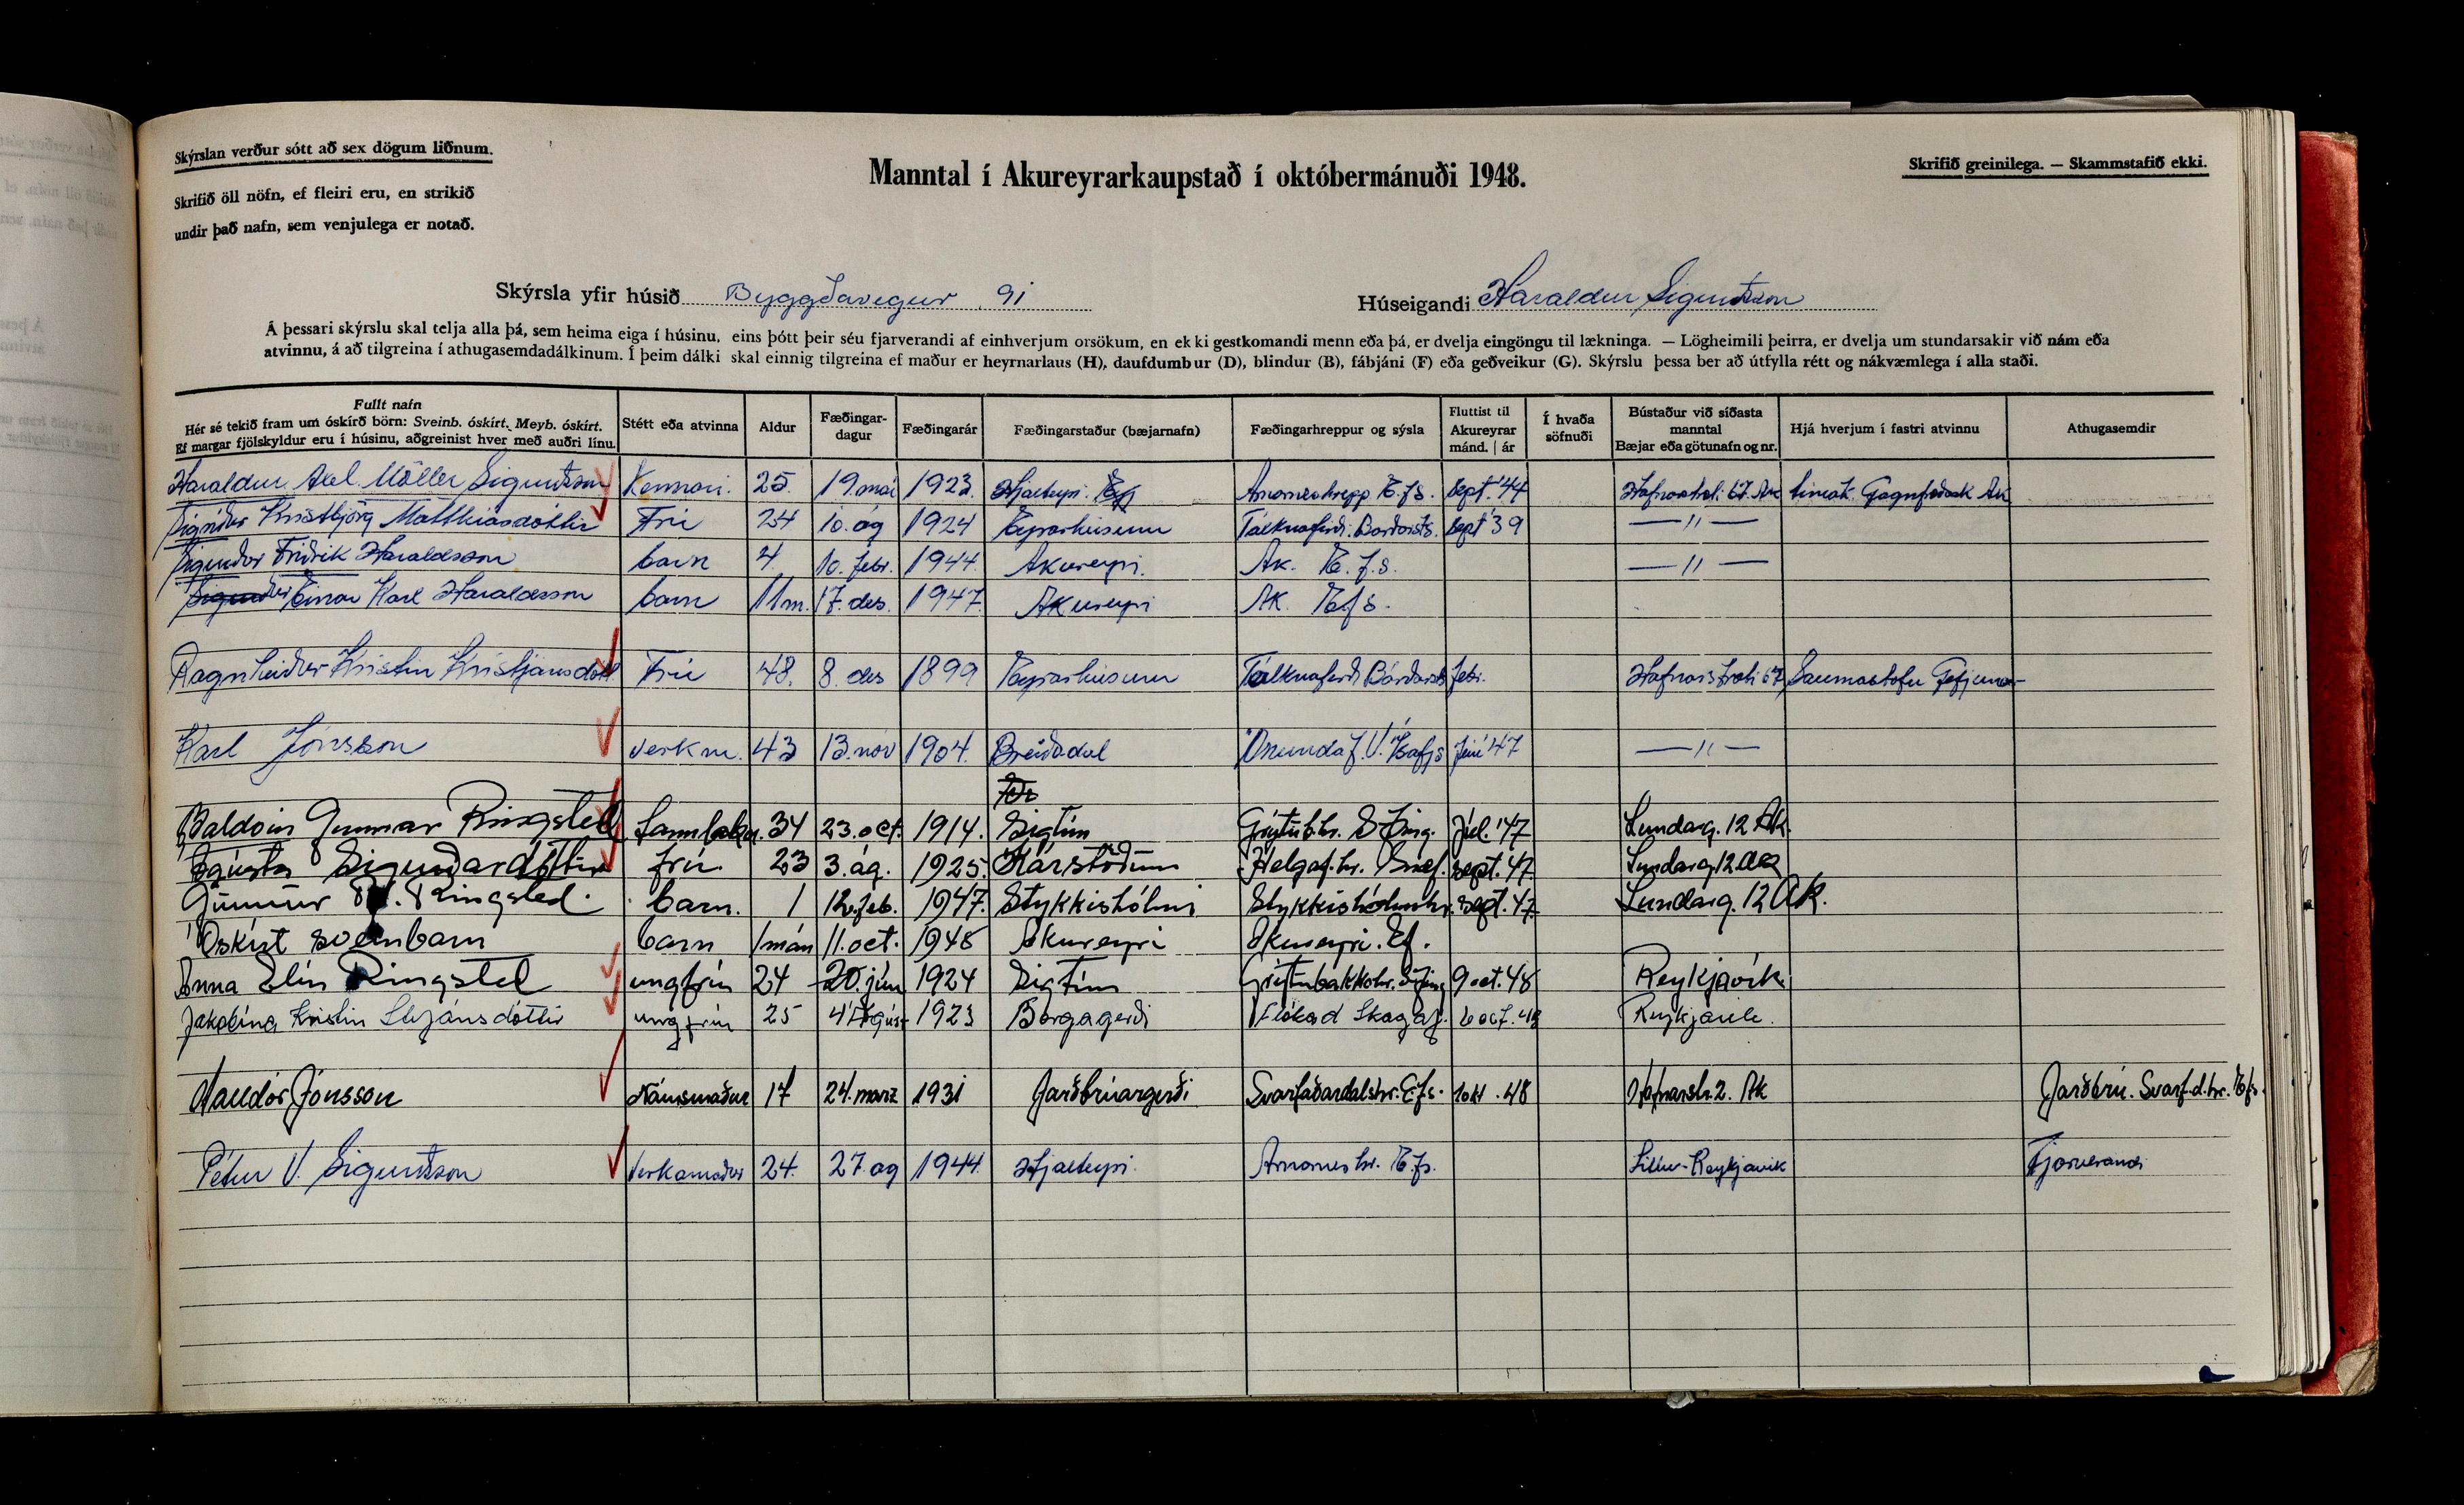 Skýrslan verður sótt að sex dögum liðnum.
Skrifið öll nöfn, ef fleiri eru, en strikið
undir það nafn, sem venjulega er notað.
Manntal í Akureyrarkaupstað í októbermánuði 1948.
Skrifið greinilega. — Skammstafið ekki.
Skýrsla yfir húsið Byggðavegur 91 Húseigandi Haraldur Sigurðsson
Á þessari skýrslu skal telja alla þá, sem heima eiga í húsinu, eins þótt þeir séu fjarverandi af einhverjum orsökum, en ekki gestkomandi menn eða þá, er dvelja eingöngu til lækninga. — Lögheimili þeirra, er dvelja um stundarsakir við nám eða
atvinnu, á að tilgreina í athugasemdadálkinum. Í þeim dálki skal einnig tilgreina ef maður er heyrnarlaus (H), daufdumbur (D), blindur (B), fábjáni (F) eða geðveikur (G). Skýrslu þessa ber að útfylla rétt og nákvæmlega í alla staði.
Fullt nafn
Hér sé tekið fram um óskírð börn: Sveinb. óskírt. Meyb. óskírt.
Ef margar fjölskyldur eru í húsinu, aðgreinist hver með auðri línu.
Stétt eða atvinna
Aldur
Fæðingar-
dagur
Fæðingarár
Fæðingarstaður (bæjarnafn)
Fæðingarhreppur og sýsla
Fluttist til
Akureyrar
mánd. | ár
Í hvaða
söfnuði
Bústaður við síðasta
manntal
Bæjar eða götunafn og nr.
Hjá hverjum í fastri atvinnu
Athugasemdir
Haraldur Axel Möller Sigurðsson Kennari. 25. 19. mai 1923. Hjalteyri. Arnarneshrepp E.fs. Sept. '44 Hafnarstr. 67. Ak Gagnfræðask Ak
Sigríður Kristbjörg Matthíasdóttir Frú 24 10. ág 1924 Eyrarhúsum Tálknafirði. Barðarsts. Sept '39 — " —
Sigurður Friðrik Haraldsson barn 4. 10. febr. 1944. Akureyri. Ak. E.f.s. — " —
Einar Karl Haraldsson barn 11m. 17. des. 1947. Akureyri Ak. E.fs.
Ragnheiður Kristín Kristjánsdótt Frú 48. 8. des 1899 Eyrarhúsum Tálknafirði Bárðarsts febr. Hafnarstræti 67 Saumastofu Gefjunar
Karl Jónsson Verkm. 43 13. nóv 1904. Breiðadal Önundaf. V. Ísafjs Júní '47 — " —
Baldvin Gunnar Ringsted 34 23. oct. 1914. Sigtún Grýtub.hr. S Þing. Júl. '47 Lundarg. 12 Ak.
Ágústa Sigurðardóttir frú 23 3. ág. 1925. Kárstöðum Helgaf.hr. Snæf. sept. 47. Lundarg 12
Gunnur Ringsted. barn. 1 12. feb. 1947. Stykkishólmi Stykkishólmshr. sept. 47. Lundarg. 12 Ak.
Óskírt sveinbarn barn 1 mán 11. oct. 1948 Akureyri Akureyri. Ef.
Anna Elín Ringsted ungfrú 24 20. jún 1924 Sigtún Grýtubakkahr. S-Þing 9 oct. 48 Reykjavík.
Jakobína Kristín Stefánsdóttir ungfrú 25 4 Ágúst 1923 Borgagerði Flókad Skagafj. oct. 48 Reykjavík.
Halldór Jónsson Námsmaður 17 24. marz 1931 Jarðbrúargerði Svarfaðardalshr. E.f.s. 1okt. 48 Hafnarstr. 2. Ak Jarðbrú. Svarf.d.hr. E.f.s.
Pétur V. Sigurðsson Verkamaður 24. 27. ág 1944. Hjalteyri. Arnarneshr. E.fs. Reykjavík Fjarverandi